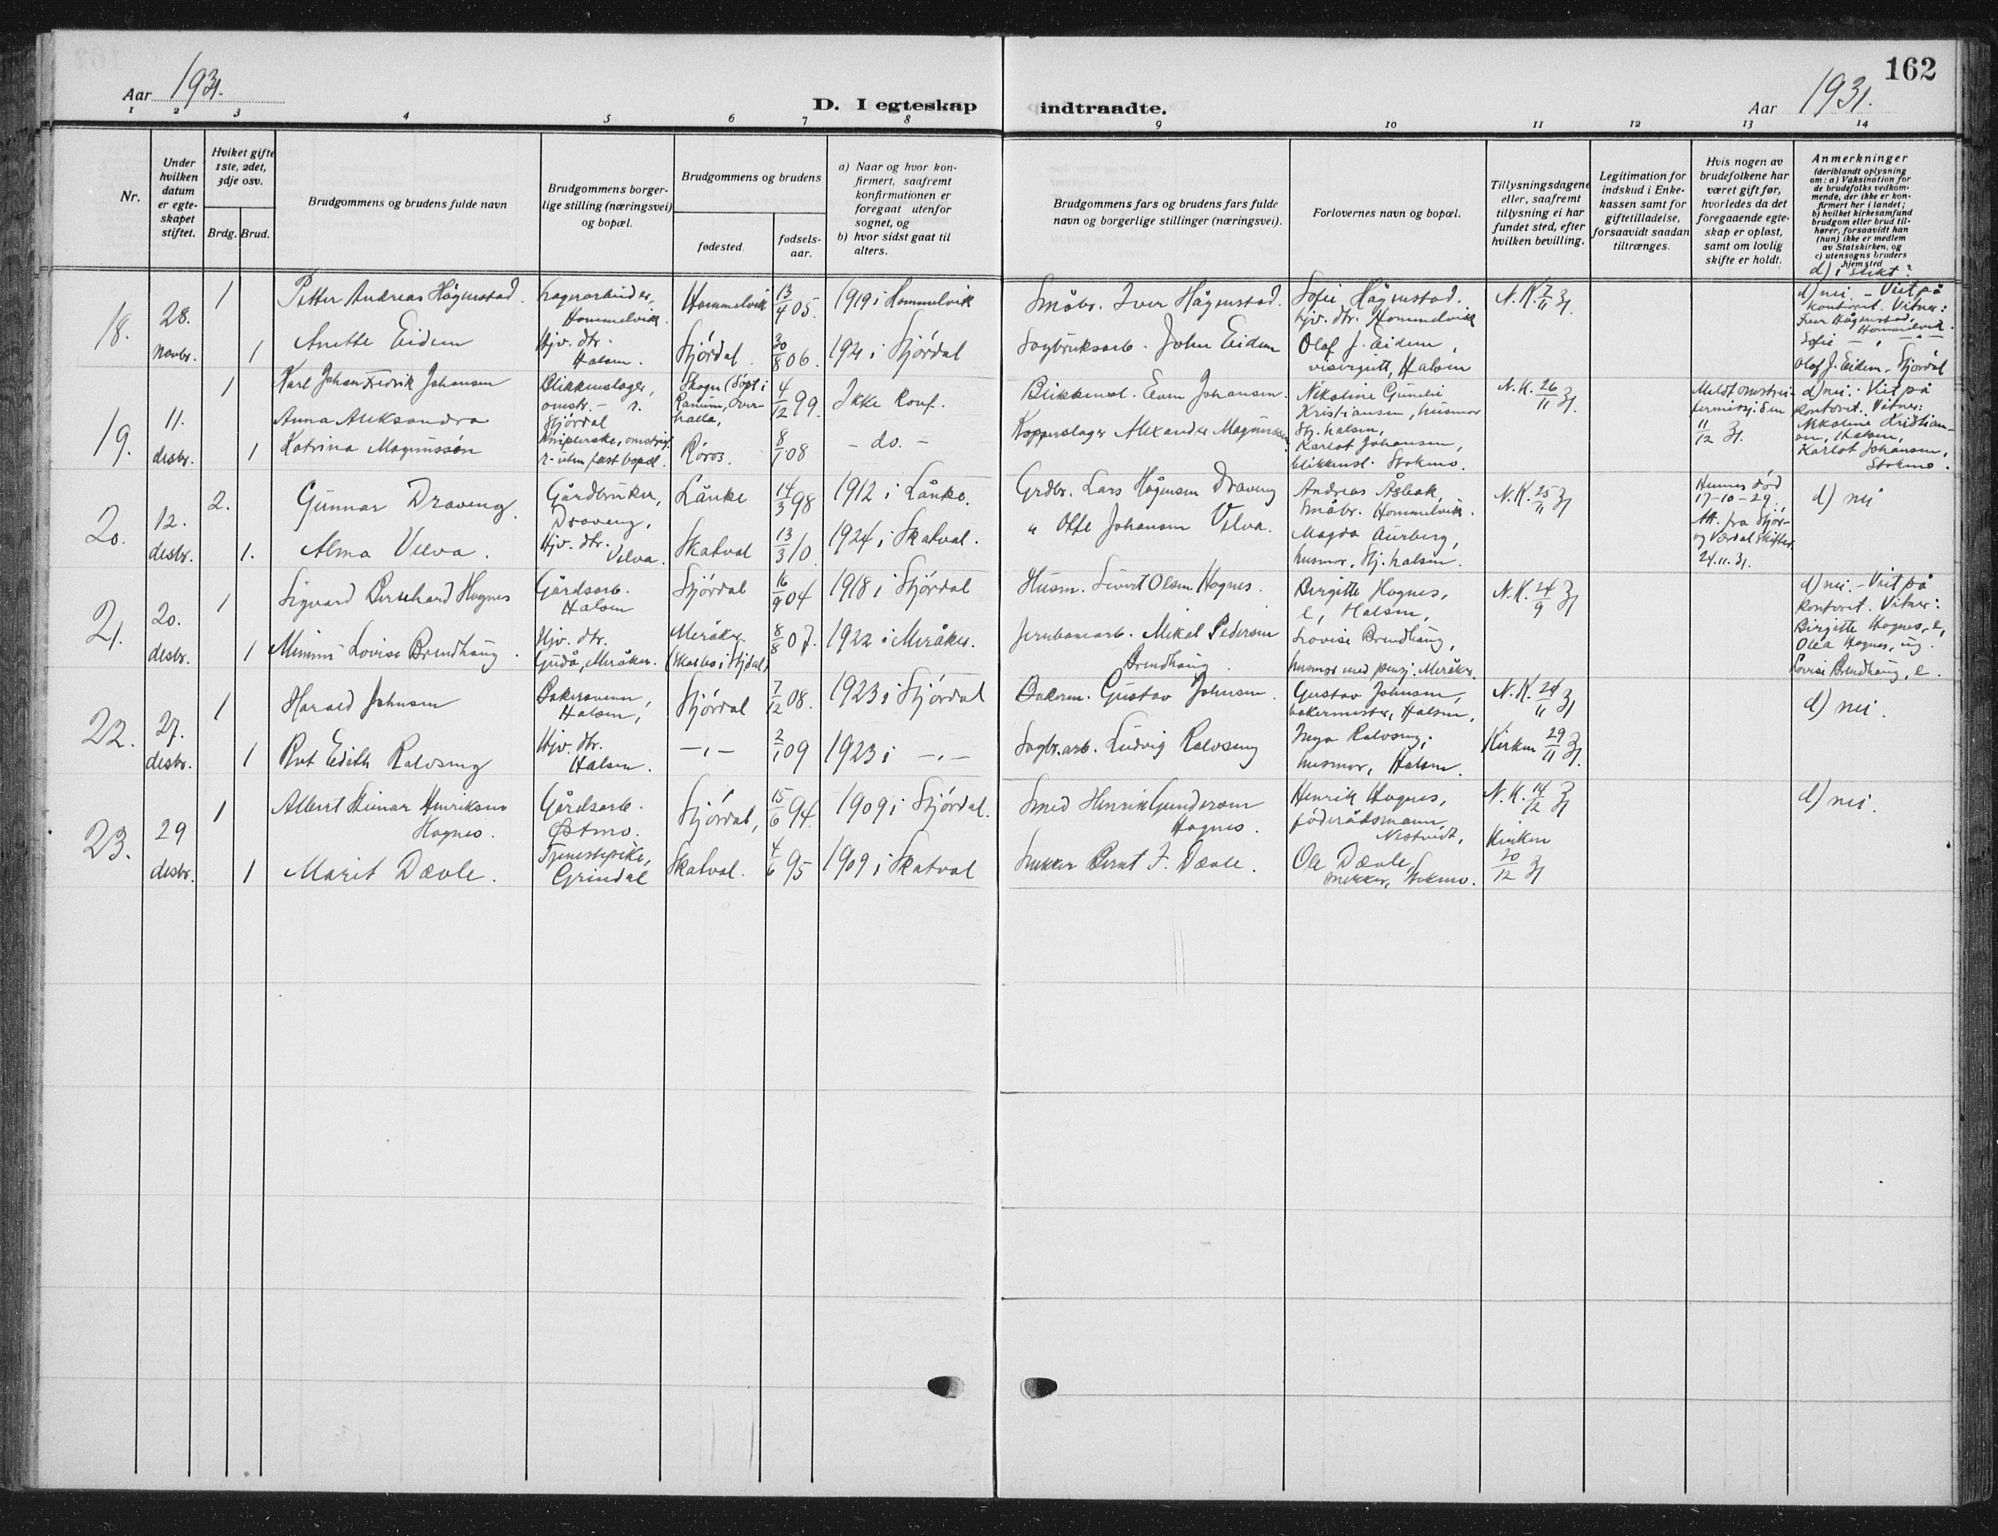 162
Aar 1931.
D. I egteskap indtraadte.
Aar 1931.
1 2 3 4 5 6 7 8 9 10 11 12 13 14
Nr.
Under hvilken datum er egteskapet stiftet.
Hviket gifte 1ste, 2det, 3dje osv.
Brdg. Brud.
Brudgommens og brudens fulde navn
Brudgommens borgerlige stilling (næringsvei) og bopæl.
Brudgommens og brudens
fødested.
fødselsaar.
a) Naar og hvor konfirmert, saafremt konfirmationen er foregaat utenfor sognet, og
b) hvor sidst gaat til alters.
Brudgommens fars og brudens fars fulde navn og borgerlige stillinger (næringsvei).
Forlovernes navn og bopæl.
Tillysningsdagene eller, saafremt tillysning ei har fundet sted, efter hvilken bevilling.
Legitimation for indskud i Enkekassen samt for giftetilladelse, forsaavidt saadan tiltrænges.
Hvis nogen av brudefolkene har været gift før, hvorledes da det foregaaende egteskap er opløst, samt om lovlig skifte er holdt.
Anmerkninger (deriblandt oplysning om: a) Vaksination for de brudefolks vedkommende, der ikke er konfirmert her i landet; b) hvilket kirkesamfund brudgom eller brud tilhører, forsaavidt han (hun) ikke er medlem av Statskirken, og c) utensogns bruders hjemsted
d) i slekt?
18. 28. novbr.
1 Petter Andreas Hågenstad. Hommelvik. Hommelvik 13/4 05. 1919 i Hommelvik
Småbr. Iver Hågenstad. Sofie Hågenstad, hjv. dtr. Hommelvik
N. K. 7/11 31.
d) nei – Viet på kontoret. Vitner: Iver Hågenstad, Hommelvik. Sofie – " – Olaf J. Eidem, Stjørdal
1 Anette Eidem Hjv. dtr. Halsen. Stjørdal 30/8 06. 1921 i Stjørdal
Sagbruksarb. John Eidem Olaf J. Eidem, visergutt, Halsen
19. 11. desbr.
1 Karl Johan Fredrik Johansen Blikkenslager, omstr. Stjørdal Skogn (døpt i Ranum, Overhalla, 4/12 99. Ikke konf.
Blikkensl. Even Johansen. Nikoline Gundie Kristiansen, husmor Stj. halsen, Karlot Johansen, blikkensl. Stokmo.
N. K. 26/11 31.
11/12 31.
d) nei. Viet på kontoret. Vitner: Nikoline Kristiansen, Halsen, Karlot Johansen, Stokmo.
1 Anna Aleksandra Katrina Magnussøn Kniplerske, Røros. 8/1 08 – do. –
Koppenslager Alexander Magnussen
20. 12. desbr.
2. Gunnar Draveng. Gårdbruker, Draveng, Lånke 14/3 98 1912 i Lånke.
Grdbr. Lars Hågensen Draveng Andreas Aglak, Småbr. Hommelvik.
N. K. 25/11 31
Hennes død 17-10-29, Att. fra Stjør- og Værdal skifter. 24.11.31.
d) nei
1. Alma Velva. Hjv. dtr. Velva. Skatval 13/3 10 1924 i Skatval.
" Olfe Johansen Velva. Magda Aurberg, husmor, Stj. halsen.
21. 20. desbr.
1 Sigvard Bernhard Hognes Gårdsarb. Halsen Stjørdal 16/9 04 1918 i Stjørdal
Husm. Sivert Olsen Hognes. Birgitte Hognes, e, Halsen,
N. K. 24/9 31
d) nei – Viet på kontoret. Vitner: Birgitte Hognes, e, Olea Hognes, ug. Lovise Brendhaug, e.
1 Mimmi Lovise Brendhaug. Hjv. dtr. Gudå, Meråker. Meråker (Skarbo i Stjdal) 8/8 07. 1922 i Meråker.
Jernbanearb. Mikal Pedersen Brendhaug. Lovise Brendhaug, husmor med pensj. Meråker
22. 27. desbr.
1 Harald Johnsen Bakersvenn, Halsen, Stjørdal 7/12 08. 1923 i Stjørdal
Bakerm. Gustav Johnsen. Gustav Johnsen, bakermester, Halsen,
N. K. 24/11 31
d) nei.
1 Rut Edith Ralvsing Hjv. dtr. Halsen. – " – 2/1 09 1923 i – " –
Sagbr. arb. Ludvig Ralvsing Inga Ralvsing, husmor, Halsen.
Kirken 29/11 31.
23. 29 desbr.
1 Albert Henriksen Hognes. Gårdsarb. Østmo. Stjørdal, 15/6 94. 1909 i Stjørdal.
Smed Henrik Gundersen Hognes. Henrik Hognes, føderådsmann,
N. K. 14/12 31
d) nei.
1 Marit Dævle. Tjenestepike, Grindal Skatval. 4/6 95 1909 i Skatval
Snekker Bernt F. Dævle. Ole Dævle, snekker, Stokmo.
Kirken 20/12 31